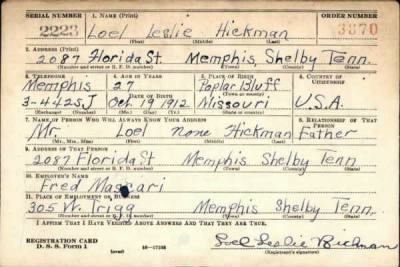 SERIAL NUMBER 1. NAME (Print) ORDER NUMBER
2223 Loel Leslie Hickman 3870
(First) (Middle) (Last)
2. ADDRESS (Print)
2087 Florida St. Memphis, Shelby Tenn.
(Number and street or R. F. D. number) (Town) (County) (State)
3. TELEPHONE 4. AGE IN YEARS 5. PLACE OF BIRTH 6. COUNTRY OF CITIZENSHIP
Memphis 27 Poplar Bluff
(Town or county)
DATE OF BIRTH
3-4425J Oct. 19 1912 Missouri U.S.A.
(Exchange) (Number) (Mo.) (Day) (Yr.) (State or country)
7. NAME OF PERSON WHO WILL ALWAYS KNOW YOUR ADDRESS 8. RELATIONSHIP OF THAT PERSON
Mr. Loel none Hickman Father
(Mr., Mrs., Miss) (First) (Middle) (Last)
9. ADDRESS OF THAT PERSON
2087 Florida St Memphis Shelby Tenn
(Number and street or R. F. D. number) (Town) (County) (State)
10. EMPLOYER'S NAME
Fred Massari
11. PLACE OF EMPLOYMENT OR BUSINESS
305 W. Trigg Memphis Shelby Tenn.
(Number and street or R. F. D. number) (Town) (County) (State)
I AFFIRM THAT I HAVE VERIFIED ABOVE ANSWERS AND THAT THEY ARE TRUE.
REGISTRATION CARD
D. S. S. Form 1 (over) 16—17105 Loel Leslie Hickman
(Registrant's signature)